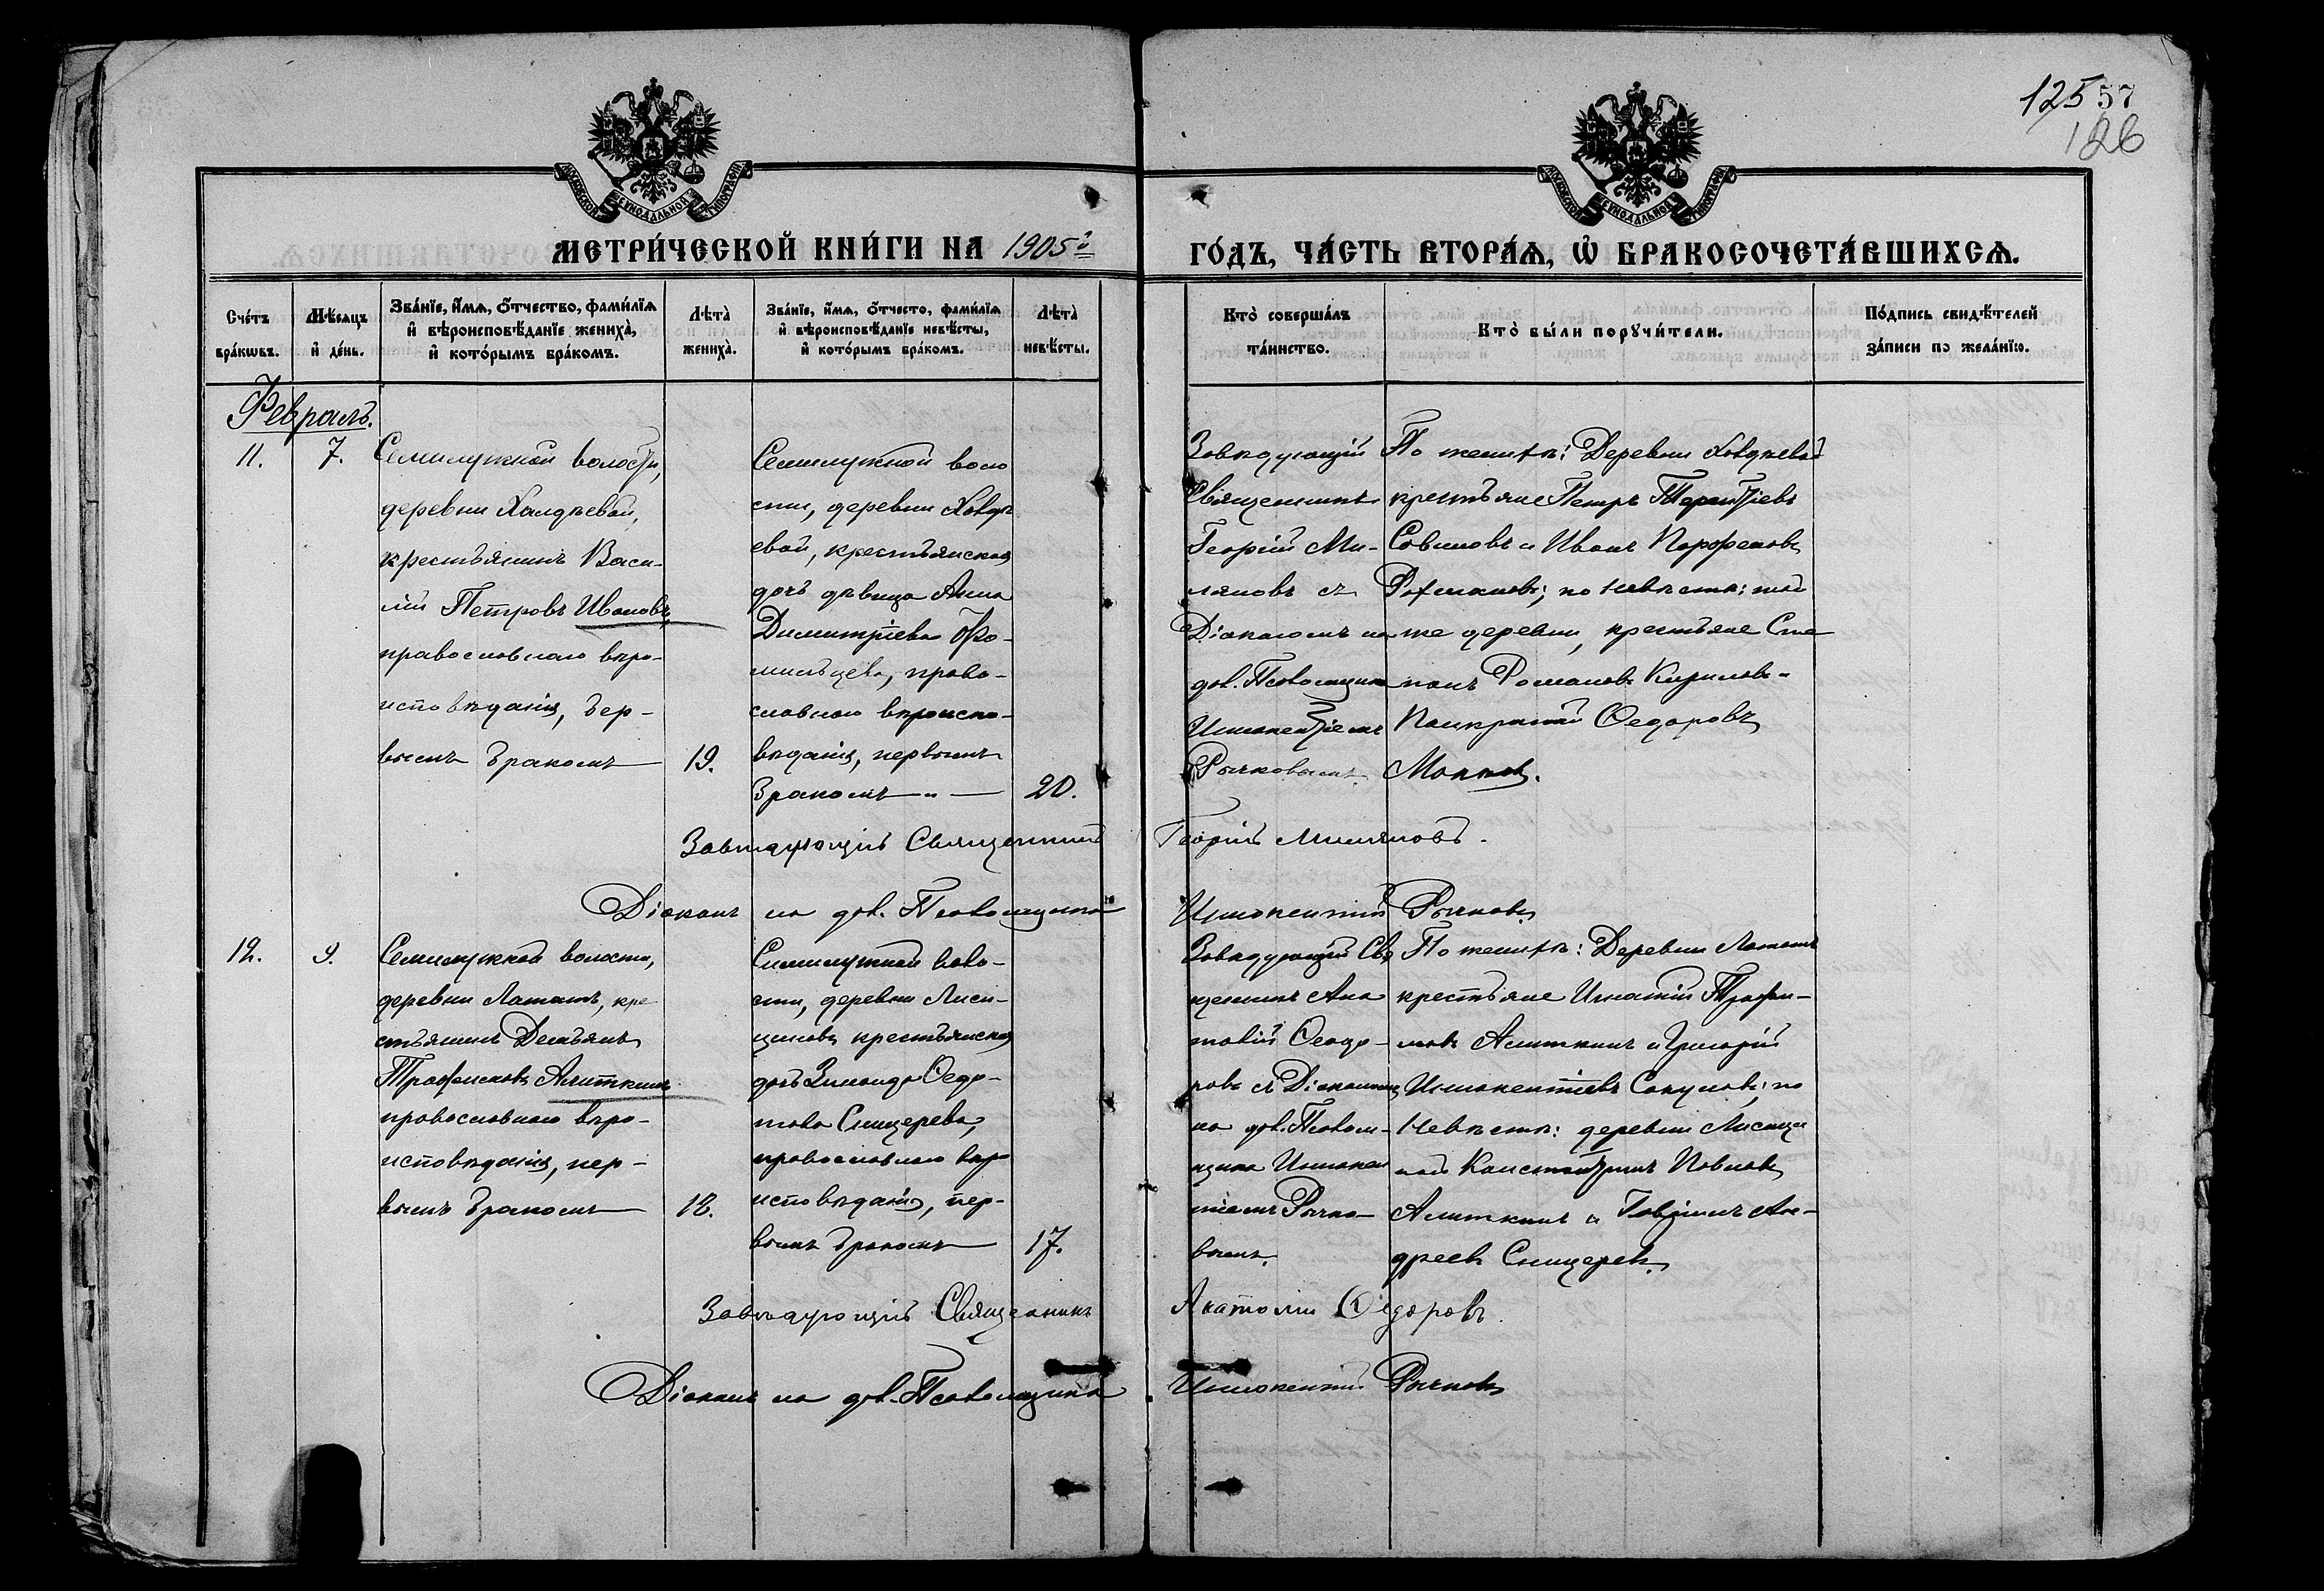 125 57
126
МОСКОВСКОЙ СѴНОДАЛЬНОЙ ТИПОГРАФІИ
МОСКОВСКОЙ СѴНОДАЛЬНОЙ ТИПОГРАФІИ
МЕТРИ́ЧЕСКОЙ КНИ́ГИ НА 1905й ГО́ДЪ, ЧА́СТЬ ВТОРА́Ѧ, Ѡ БРАКОСОЧЕТА́ВШИХСѦ.
Сче́тъ бра́кѡвъ.
Мѣ́сяцъ и҆ де́нь.
Зва́нїе, и҆́мѧ, ѻ҆́тчество, фами́лїѧ
и҆ вѣроисповѣ́данїе жениха̀,
и҆ кото́рымъ бра́комъ.
Лѣта̀ жениха̀.
Зва́нїе, и҆́мѧ, ѻ҆́тчесто, фами́лїѧ
и҆ вѣроисповѣ́данїе невѣ́сты,
и҆ кото́рымъ бра́комъ.
Лѣта̀ невѣ́сты.
Кто̀ соверша́лъ та́инство.
Кто̀ бы́ли порꙋчи́тели.
По́дпись свидѣ́телей за́писи по жела́нїю.
Февраль.
11.
7.
Семилужной волости,
деревни Халдѣевой,
крестьянинъ Васи-
лій Петровъ Ивановъ,
православнаго вѣро-
исповѣданія, пер-
вымъ бракомъ
19.
Семилужной воло
сти, деревни Халдѣ
евой, крестьянская
дочь дѣвица Анна
Димитріева
православнаго вѣроиспо-
вѣданія, первымъ
бракомъ
20.
Завѣдующій
Священникъ
Георгій Ми-
ляновъ съ
Діакономъ на
дов. Псаломщика
Иннокентіемъ
Рычковымъ.
По женихѣ: Деревни Халдѣевой
крестьяне Петръ Терентіевъ
Савиновъ и Иванъ
по невѣстѣ: той
же деревни, крестьяне Сте
панъ Романовъ Кириловъ и
Панкратій Ѳедоровъ
Завѣдующій Священникъ Георгій Миляновъ.
Діаконъ на дов. Псаломщика Иннокентій Рычковъ
12.
9.
Семилужной волости,
деревни Лататъ, кре
стьянинъ Демьянъ
Трофимовъ Алиткинъ
православнаго вѣро-
исповѣданія, пер-
вымъ бракомъ
18.
Семилужной воло-
сти, деревни Лиси-
цыной, крестьянская
дочь Зинаида Ѳедо-
това Сницерева,
православнаго вѣро
исповѣданія, пер-
вымъ бракомъ
17.
Завѣдующій Свя
щенникъ Ана
толій Ѳеодо-
ровъ съ Діакономъ
на дов. Псалом-
щика Иннокен
тіемъ Рычко-
вымъ.
По женихѣ: Деревни Лататъ
крестьяне Игнатій Трофи-
мовъ Алиткинъ и Григорій
Иннокентіевъ по
невѣстѣ: деревни Лисицы
ной Константинъ Павловъ
Алиткинъ и Гавріилъ Ан-
дреевъ Сницеревъ.
Завѣдующій Священникъ Анатолій Ѳедоровъ.
Діаконъ на дов. Псаломщика Иннокентій Рычковъ